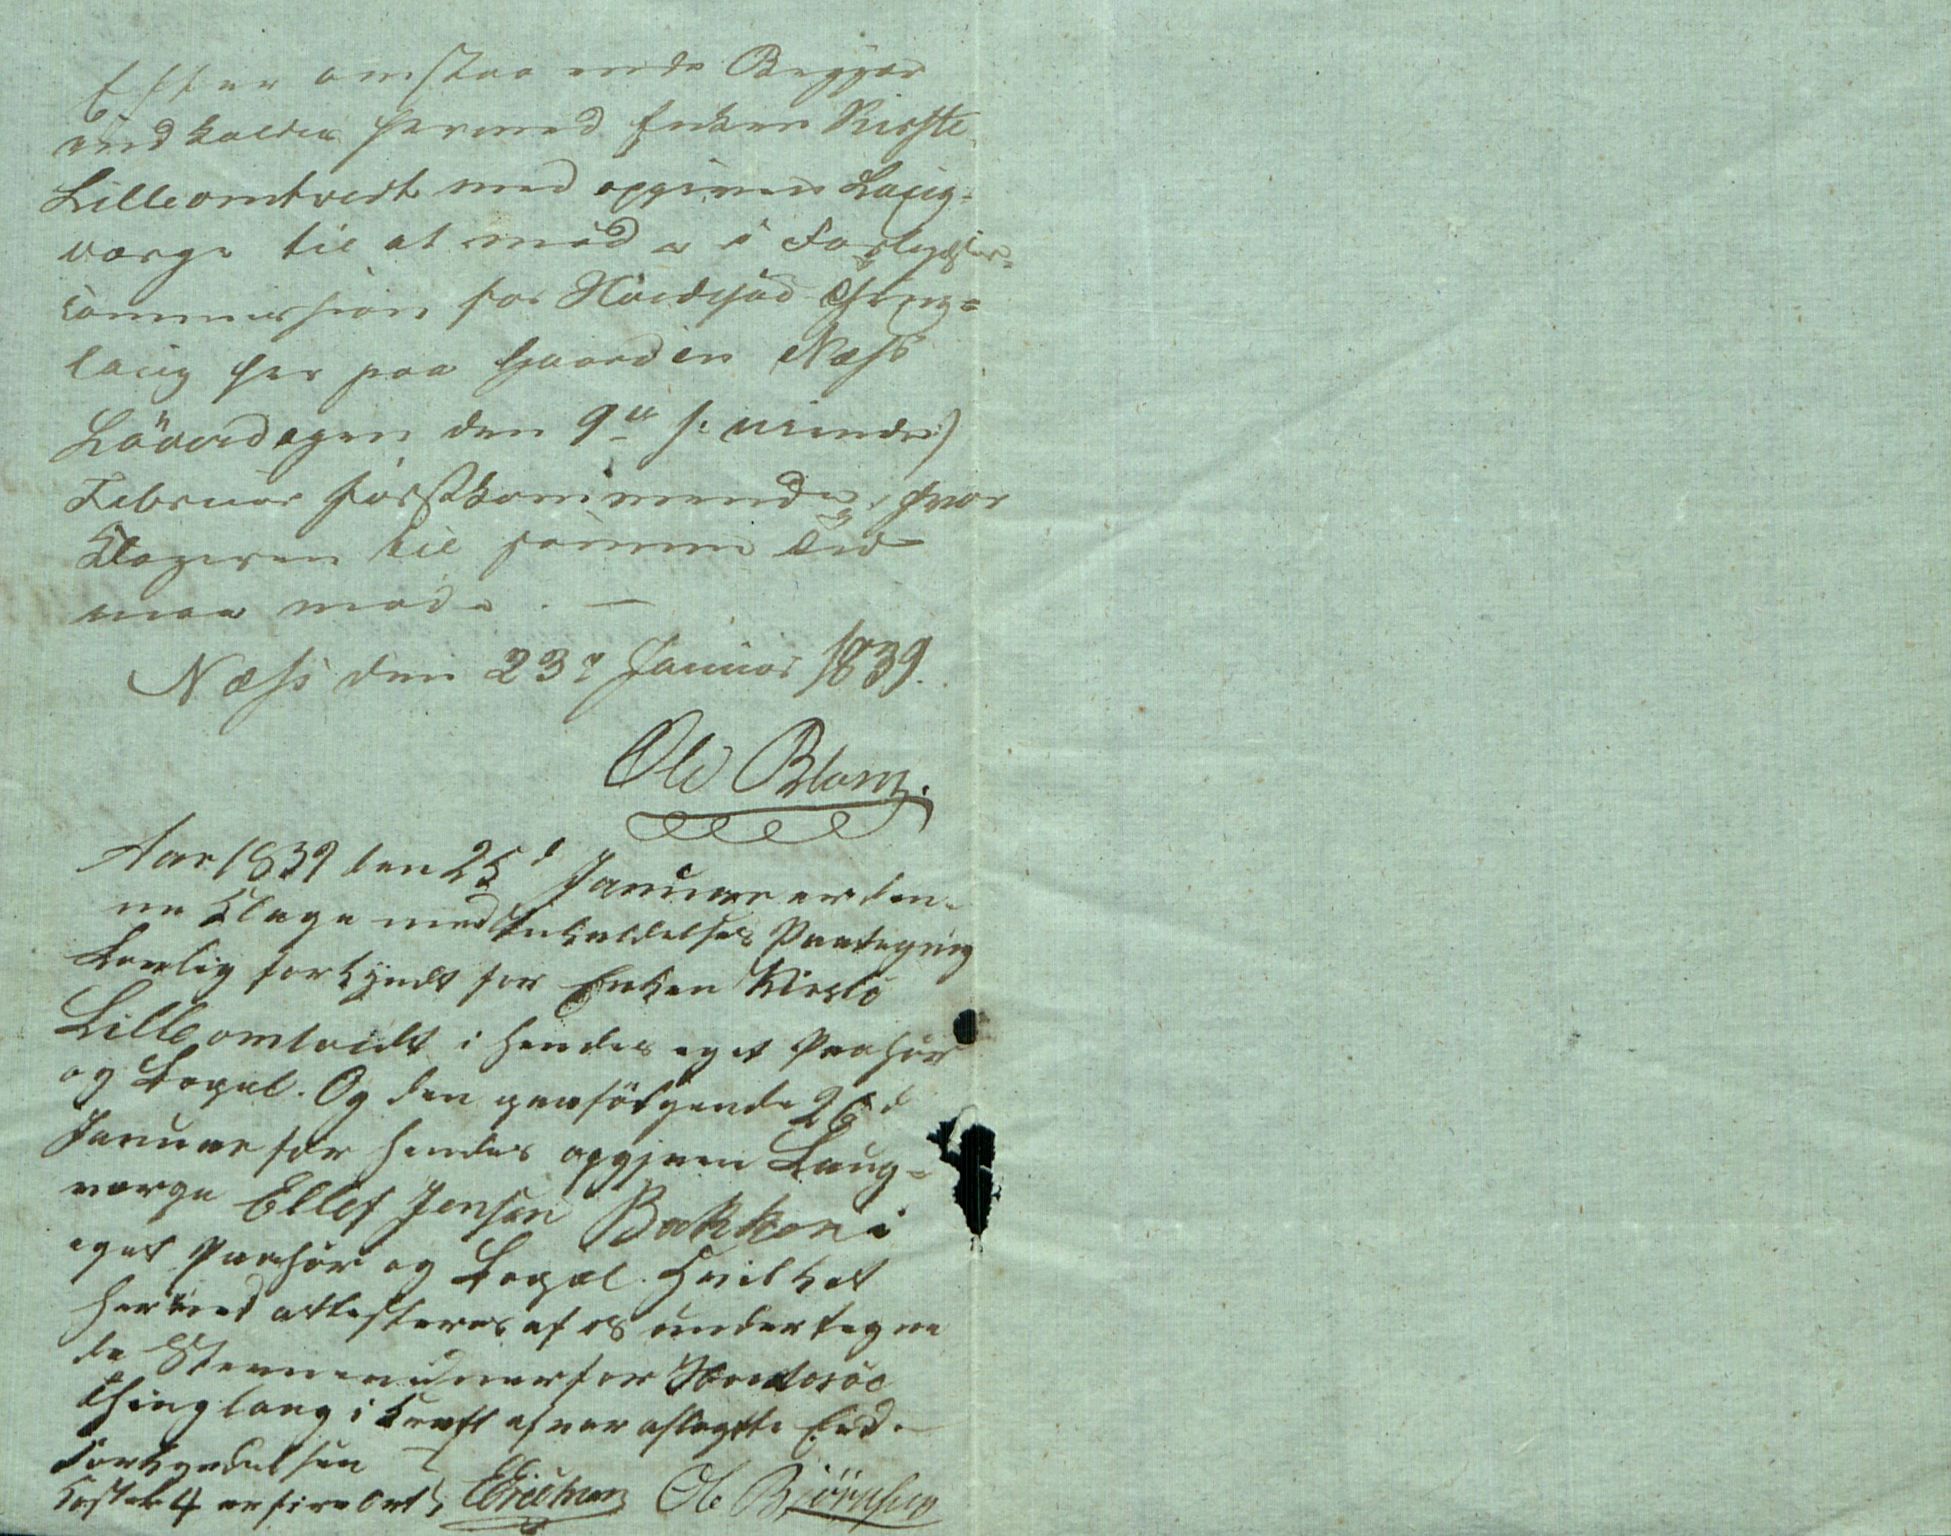 Efter omstaaende Begjær
indkaldes hermed Enken Kirste
Lilleomtvedt med opgiven Laug-
værge til at møde i Forligelses-
commission for Hæidsjød Thing-
laug her paa Gaarden Næss
Løverdagen den 9de /: niende :/
Februar førstkommende, hvor
Klageren til samme Tid
maa møde. —
Næss den 23de Januar 1839.
Ole Blom.
Aar 1839 den 25d Januar er den-
ne Klage med Inkaldelses Paategning
Lovlig forkyndt for Enken Kirste
Lilleomtvidt i hendes eget Paahør
og Bopæl. Og den paafølgende 26d
Januar for hendes opgiven Laug-
værge Ellef Jensen Bakken i
eget Paahør og Bopæl. Hvilket
herved attesteres af os undertegne
de Stevnevidner for
Thinglaug i Kraft af vor aflagte Eed.
Forkyndelsen
koster 4 er fire Ort Ole Bjørnsen